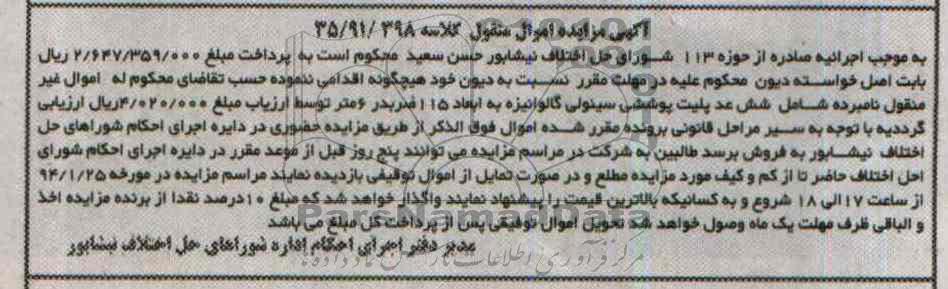 آگهی مزایده اموال منقول کلاسه ۳۹۸ /۳۵/۹۱
به موجب اجرائیه صادره از حوزه ۱۱۳ شورای حل اختلاف نیشابور حسن سعید محکوم است به پرداخت مبلغ ۲/۶۴۷/۳۵۹/۰۰۰ ریال
بابت اصل خواسته دیون محکوم علیه در مهلت مقرر نسبت به دیون خود هیچگونه اقدامی ننموده حسب تقاضای محکوم له اموال غیر
منقول نامبرده شامل شش عد پلیت پوششی سینوئی گالوانیزه به ابعاد ۱۱۵ ضربدر ۶متر توسط ارزیاب مبلغ ۴/۰۲۰/۰۰۰ریال ارزیابی
گرددیه با توجه به سیر مراحل قانونی پرونده مقرر شده اموال فوق الذکر از طریق مزایده حضوری در دایره اجرای احکام شوراهای حل
اختلاف نیشابور به فروش برسد طالبین به شرکت در مراسم مزایده می توانند پنج روز قبل از موعد مقرر در دایره اجرای احکام شورای
احل اختلاف حاضر تا از کم و کیف مورد مزایده مطلع و در صورت تمایل از اموال توقیفی بازدیده نمایند مراسم مزایده در مورخه ۹۴/۱/۲۵
از ساعت ۱۷ الی ۱۸ شروع و به کسانیکه بالاترین قیمت را پیشنهاد نمایند واگذار خواهد شد که مبلغ ۱۰درصد نقدا از برنده مزایده اخذ
و الباقی ظرف مهلت یک ماه وصول خواهد شد تحویل اموال توقیفی پس از پرداخت کل مبلغ می باشد
مدیر دفتر اجرای احکام اداره شوراهای حل اختلاف نیشابور
ParsNamadData
مرکز فرآوری اطلاعات پارس نماد داده ها